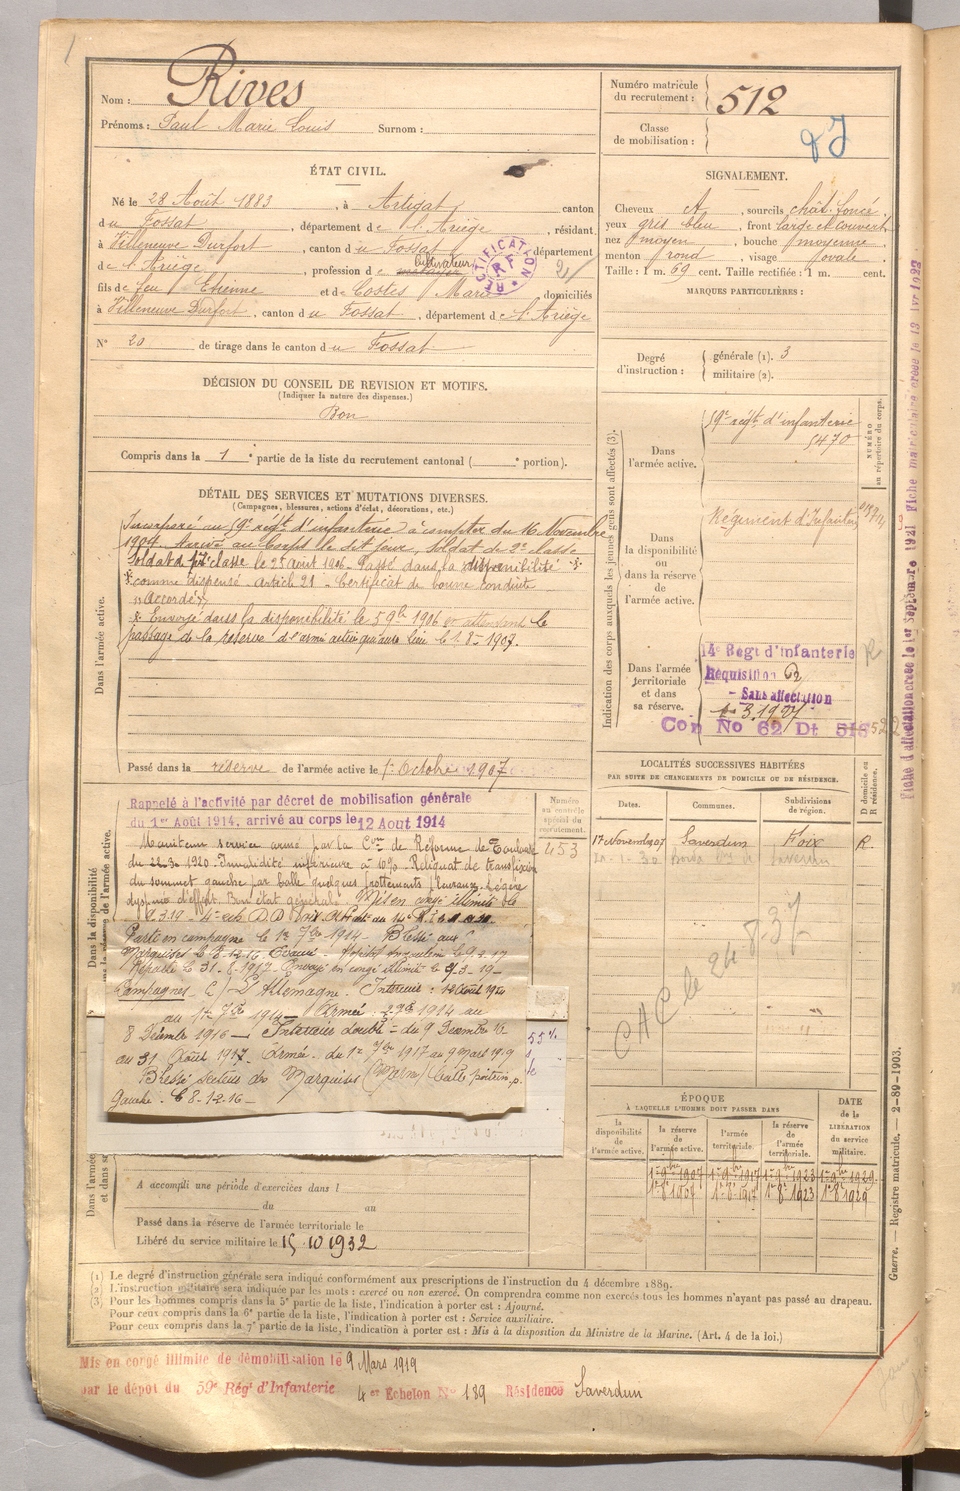 Nom : Rives
Prénoms : Paul Marie Louis Surnom :
Numéro matricule du recrutement : 512
Classe de mobilisation :
ÉTAT CIVIL.
Né le 28 Août 1883, à Artigat, canton
du Fossat, département de l'Ariège, résidant
à Villeneuve Durfort, canton du Fossat, département
de l'Ariège, profession de cultivateur
RECTIFICATION RF
fils de feu Etienne et de Costes Marie domiciliés
à Villeneuve Durfort, canton du Fossat, département de l'Ariège
N° 20 de tirage dans le canton du Fossat
SIGNALEMENT.
Cheveux , sourcils chât. foncé
yeux gris bleu, front large et couvert
nez moyen, bouche moyenne
menton rond, visage ovale
Taille : 1 m. 69 cent. Taille rectifiée : 1 m. cent.
MARQUES PARTICULIÈRES :
Degré d'instruction : générale (1). 3
militaire (2).
DÉCISION DU CONSEIL DE REVISION ET MOTIFS.
(Indiquer la nature des dispenses.)
Bon
Compris dans la 1e partie de la liste du recrutement cantonal ( e portion).
DÉTAIL DES SERVICES ET MUTATIONS DIVERSES.
(Campagnes, blessures, actions d'éclat, décorations, etc.)
Dans l'armée active.
Incorporé au 59e régt d'infanterie à compter du 16 Novembre
1904. Arrivé au Corps le dit jour, Soldat de 2e classe
Soldat de 1re classe le 25 août 1906. Passé dans la disponibilité
comme dispensé article 21 - Certificat de bonne conduite
"Accordé"
Envoyé dans la disponibilité le 5 9bre 1906 en attendant le
passage de la réserve de l'armée active qui aura lieu le 1.8.1907.
Passé dans la réserve de l'armée active le 1er Octobre 1907
Indication des corps auxquels les jeunes gens sont affectés (3).
NUMÉRO au répertoire du corps.
Dans l'armée active.
59e régt d'infanterie
5470
Dans la disponibilité ou dans la réserve de l'armée active.
Régiment d'Infanterie
Dans l'armée territoriale et dans sa réserve.
14e Régt d'infanterie
Réquisition
- Sans affectation
Con No 62 Dt 518
Fiche matriculaire créée le
LOCALITÉS SUCCESSIVES HABITÉES
PAR SUITE DE CHANGEMENTS DE DOMICILE OU DE RÉSIDENCE.
Dates. Communes. Subdivisions de région. D domicile ou R résidence.
Saverdun Foix R.
CAC le 24-8-37
Dans la disponibilité
Numéro au contrôle spécial du recrutement.
453
Rappelé à l'activité par décret de mobilisation générale
du 1er Août 1914, arrivé au corps le 12 Aout 1914
Maintenu service armé par la Con de Réforme de Toulouse
1920. Invalidité inférieure à 10% Reliquat de transfixion
du sommet gauche par balle quelques frottements pleuraux. Légère
dyspnée d'effort. Bon état général. Mis en congé illimité le
Parti en campagne le 1er 7bre 1914 - Blessé aux
Marquises le 8-12-16 Evacué -
Reparti le 31. 8. 1917. Envoyé en congé illimité le 9-3-19-
Campagnes C/ L'Allemagne. Interieur : 12 Août 1914
au 1er 7bre 1914 - Armée : 2 7bre 1914 au
8 Décembre 1916 - Interieur double = du 9 Décembre 16
au 31 Août 1917. Armée - du 1er 7bre 1917 au 9 Mars 1919
Blessé secteur des Marquises (Marne) balle poitrine p.
Gauche. le 8-12-16-
ÉPOQUE
À LAQUELLE L'HOMME DOIT PASSER DANS
la disponibilité de l'armée active. la réserve de l'armée active. l'armée territoriale. la réserve de l'armée territoriale. DATE de la LIBÉRATION du service militaire.
1er 9bre 1907 1er 9bre 1917 1er 9bre 1923 1er 9bre 1929
1er 8 1907 1er 8 1917 1er 8 1923 1er 8 1929
A accompli une période d'exercices dans l
du au
Passé dans la réserve de l'armée territoriale le
Libéré du service militaire le 15.10 1932
(1) Le degré d'instruction générale sera indiqué conformément aux prescriptions de l'instruction du 4 décembre 1889.
(2) L'instruction militaire sera indiquée par les mots : exercé ou non exercé. On comprendra comme non exercés tous les hommes n'ayant pas passé au drapeau.
(3) Pour les hommes compris dans la 5e partie de la liste, l'indication à porter est : Ajourné.
Pour ceux compris dans la 6e partie de la liste, l'indication à porter est : Service auxiliaire.
Pour ceux compris dans la 7e partie de la liste, l'indication à porter est : Mis à la disposition du Ministre de la Marine. (Art. 4 de la loi.)
Guerre. — Registre matricule. — 2-89-1903.
Mis en congé illimité de démobilisation le 9 Mars 1919
par le dépôt du 59e Régt d'Infanterie 4er Echelon N° 189 Résidence Saverdun